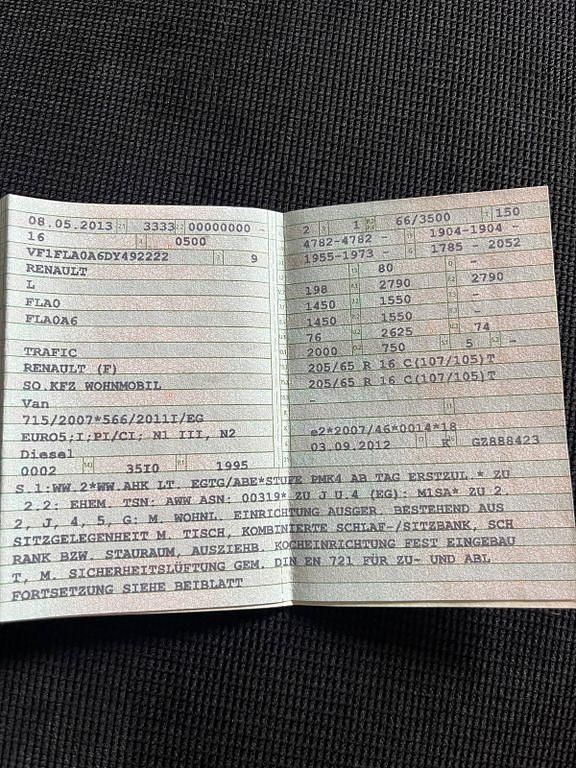 08.05.2013 3333 00000000 -
16 0500
VF1FLA0A6DY492222 9
RENAULT
L
FLA0
FLA0A6
TRAFIC
RENAULT (F)
SO.KFZ WOHNMOBIL
Van
715/2007*566/2011I/EG
EURO5;I;PI/CI; N1 III, N2
Diesel
0002 35I0 1995
2 1 66/3500 150
4782-4782 - 1904-1904 -
1955-1973 - 1785 - 2052
80 -
198 2790 2790
1450 1550 -
1450 1550 -
76 2625 74
2000 750 5 -
205/65 R 16 C(107/105)T
205/65 R 16 C(107/105)T
-
e2*2007/46*0014*18
03.09.2012 K GZ888423
S.1:WW.2*WW.AHK LT. EGTG/ABE*STUFE PMK4 AB TAG ERSTZUL.* ZU
2.2: EHEM. TSN: AWW ASN: 00319* ZU J U.4 (EG): M1SA* ZU 2.
2, J, 4, 5, G: M. WOHNL. EINRICHTUNG AUSGER. BESTEHEND AUS
SITZGELEGENHEIT M. TISCH, KOMBINIERTE SCHLAF-/SITZBANK, SCH
RANK BZW. STAURAUM, AUSZIEHB. KOCHEINRICHTUNG FEST EINGEBAU
T, M. SICHERHEITSLÜFTUNG GEM. DIN EN 721 FÜR ZU- UND ABL
FORTSETZUNG SIEHE BEIBLATT